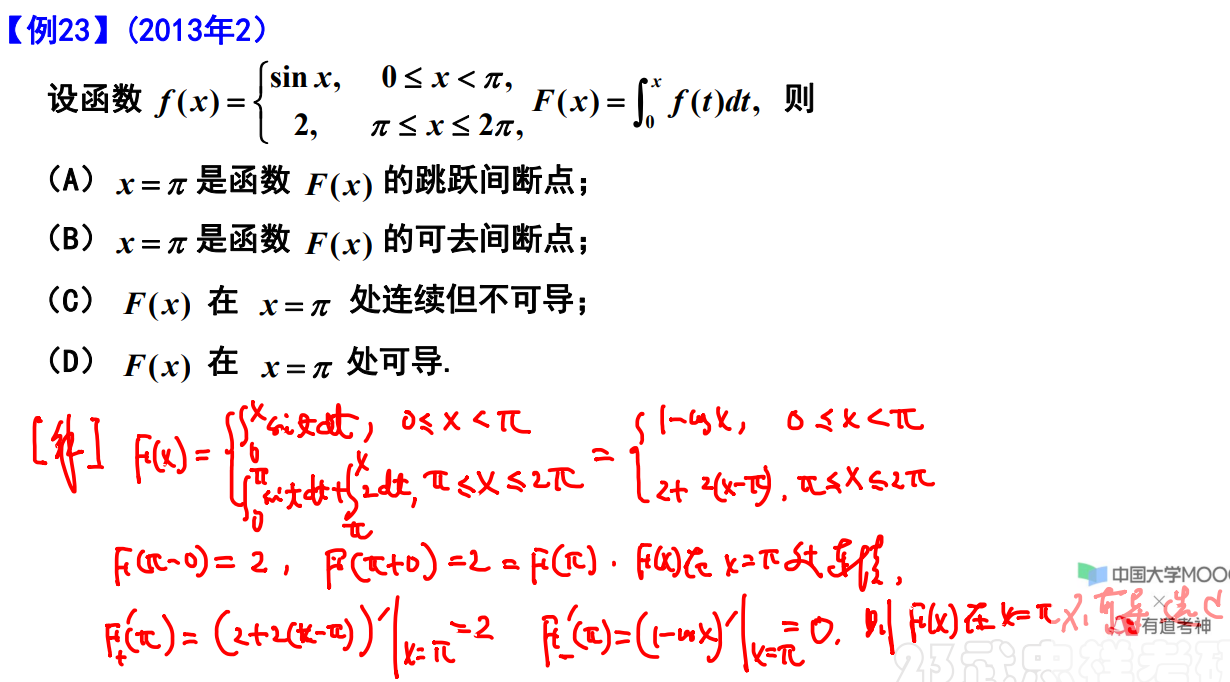 【例23】(2013年2)
设函数 f(x) = { sin x, 0 ≤ x < π, 2, π ≤ x ≤ 2π, F(x) = ∫₀ˣ f(t)dt, 则
(A) x = π 是函数 F(x) 的跳跃间断点;
(B) x = π 是函数 F(x) 的可去间断点;
(C) F(x) 在 x = π 处连续但不可导;
(D) F(x) 在 x = π 处可导.
[解] F(x) = { ∫₀ˣ sin t dt, 0 ≤ x < π ; ∫₀^π sin t dt + ∫_π^x 2 dt, π ≤ x ≤ 2π = { 1 - cos x, 0 ≤ x < π ; 2 + 2(x-π), π ≤ x ≤ 2π
F(π-0) = 2, F(π+0) = 2 = F(π). F(x)在 x=π 处连续,
F₊'(π) = (2+2(x-π))'|x=π = 2 F₋'(π) = (1-cos x)'|x=π = 0. 则 F(x)在 x=π
中国大学MOOC
有道考神
23武忠祥考研